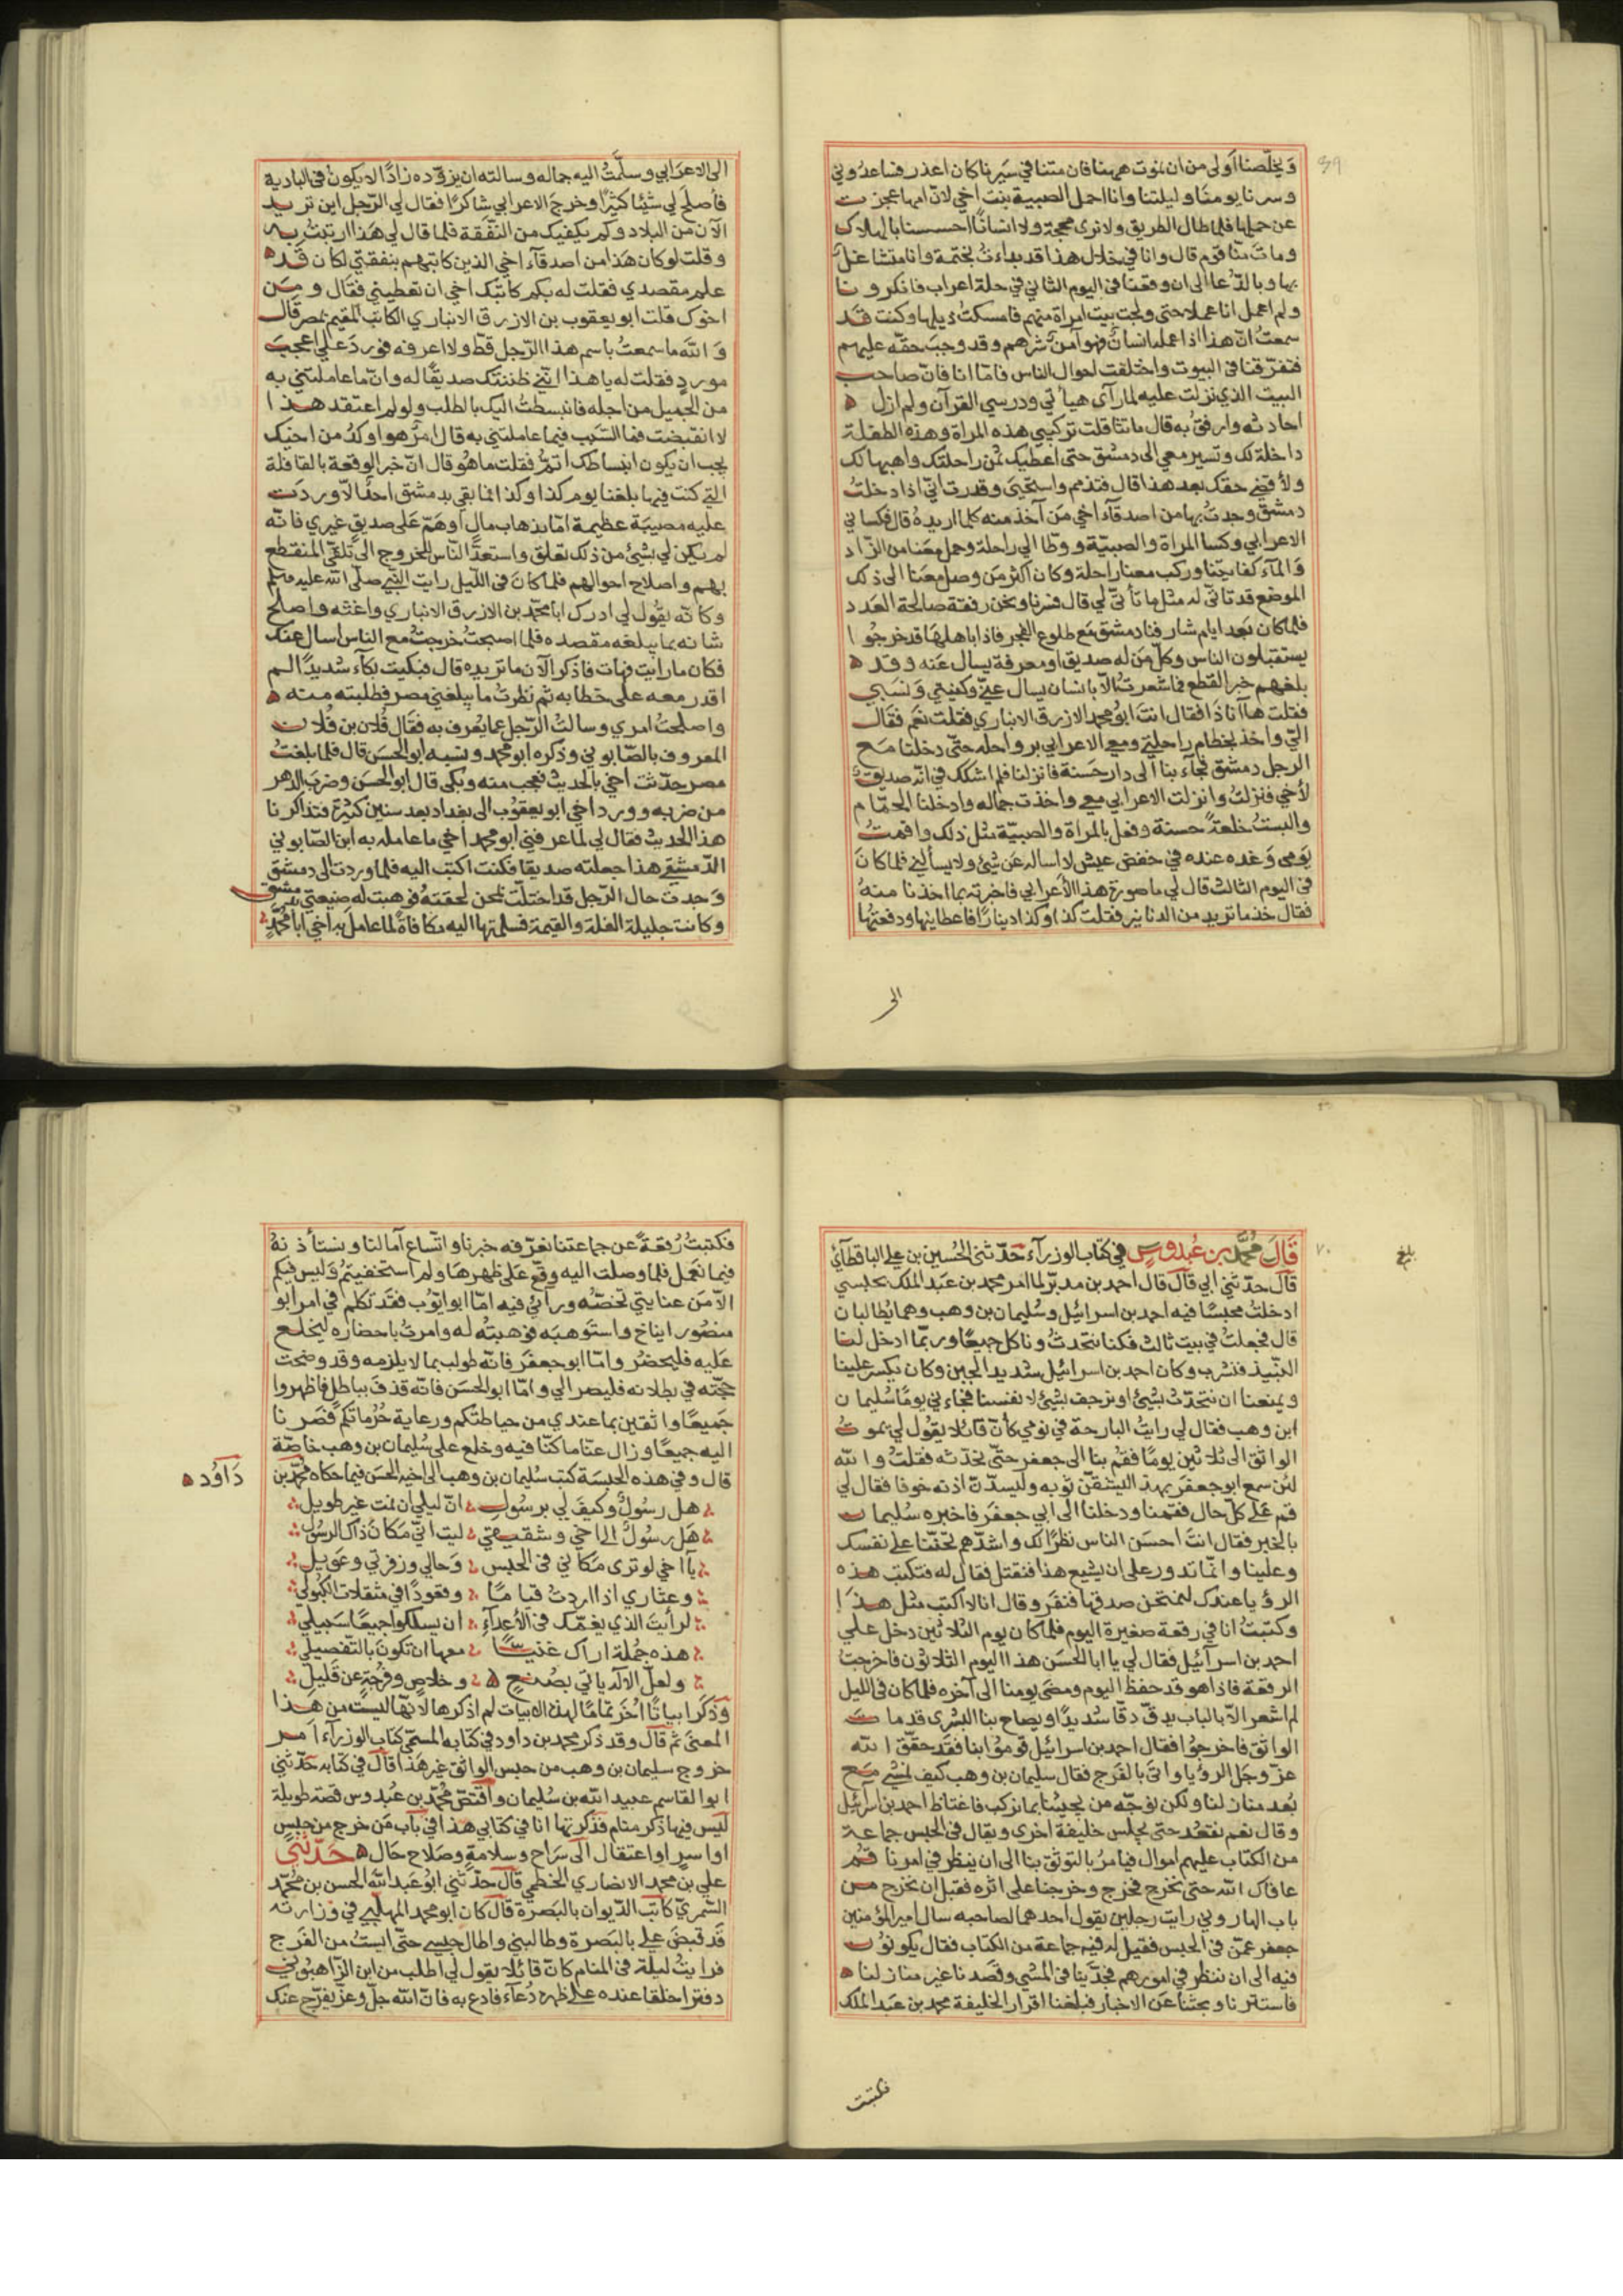 ويخلّصنا اولى من ان نموت ههنا فان متنا في سيرنا كان اعذر فساعدوني
وسرنا يومنا وليلتنا وانا احمل الصبية بنت اخي لانّ امها عجزت
عن حملها فلما طال الطريق ولا نرى محجة ولا انسانًا احسسنا بالهلاك
ومات منّا قوم قال وانا في خلال هذا قد بداءت بختمة وانا متشاغل
بها وبالدّعا الى ان وقعنا فى اليوم الثاني في حلة اعراب فانكرونا
ولم اعمل انا عملا حتى ولجت بيت امراة منهم فامسكت ذيلها وكنت قد
سمعت انّ هذا اذا عمله انسان فهو آمن شرهم وقد وجب حقه عليهم
فتفرّقنا فى البيوت واختلفت احوال الناس فامّا انا فانّ صاحب
البيت الذي نزلت عليه لما رآى هيأتي ودرسي القرآن ولم ازل
احادثه وارفق به قال ما تشا قلت تركبني هذه المراة وهذه الطفلة
راحلة لك وتسير معي الى دمشق حتى اعطيك ثمن راحلتك واهبها لك
ولاقضي حقك بعد هذا قال فتذمم واستحيى وقدرت انّي اذا دخلت
دمشق وجدت بها من اصدقآء اخي من آخذ منه كلما اريده قال فكساني
الاعرابي وكسا المراة والصبيّة ووطا الي راحلة وحمل معنا من الزاد
والمآء كفايتنا وركب معنا راحلة وكان اكثر من وصل معنا الى ذلك
الموضع قد تاتّى له مثل ما تأتّى لي قال فسرنا ونحن رفقة صالحة العدد
فلما كان بعد ايام شارفنا دمشق مع طلوع الفجر فاذا باهلها قد خرجوا
يستقبلون الناس وكلّ من له صديق او معرفة يسال عنه وقد
بلغهم خبر القطع فما شعرت الّا بانسان يسال عنّي وكنيتي ونسبي
فقلت ها آنا ذا فقال انت ابو محمد الازرق الانباري فقلت نعم فقال
اليّ واخذ بخطام راحلتي ومعي الاعرابي برواحله حتّى دخلنا مع
الرجل دمشق فجآء بنا الى دار حسنة فانزلنا فلم اشكك في انّه صديق
لأخي فنزلت وانزلت الاعرابي معي واخذت جماله وادخلنا الحمّام
والبست خلعةً حسنة وفعل بالمراة والصبيّة مثل ذلك واقمت
يومى وغده عنده في خفض عيش لا اساله عن شئ ولا يسألني فلما كان
فى اليوم الثالث قال لي ما صورة هذا الأعرابي فاخبرته بما اخذنا منه
فقال خذ ما تريد من الدنانير فقلت كذا وكذا دينارًا فاعطانيها ودفعتها
الى
الى الاعرابي وسلّمت اليه جماله وسالته ان يزوّده زادًا لا يكون فى البادية
فأصلح لي شيئا كثيرًا وخرج الاعرابي شاكرًا فقال لي الرّجل اين تريد
الآن من البلاد وكم يكفيك من النفقة فلما قال لي هذا ارتبت به
وقلت لو كان هذا من اصدقآء اخي الذين كاتبهم بنفقتي لكان قد
علم مقصدي فقلت له بكم كاتبك اخي ان تعطيني فقال ومن
اخوك قلت ابو يعقوب بن الازرق الانباري الكاتب المقيم بمصر قال
والله ما سمعت باسم هذا الرّجل قطّ ولا اعرفه فورد علي اعجب
مورد فقلت له يا هذا انّني ظننتك صديقًا له وانّ ما عاملتني به
من الجميل من اجله فانبسطت اليك بالطلب ولو لم اعتقد هذا
لانقبضت فما السّبب فيما عاملتني به قال امرٌ هو اوكد من اخيك
يجب ان يكون انبساطك اتمّ فقلت ما هو قال انّ خبر الوقعة بالقافلة
التي كنت فيها بلغنا يوم كذا وكذا فما بقي بدمشق احدٌ الّا وردت
عليه مصيبة عظيمة امّا بذهاب مال او همّ على صديق غيري فانّه
لم يكن لي بشئ من ذلك تعلق واستعدّ النّاس للخروج الى تلقّي المنقطع
بهم واصلاح احوالهم فلما كان فى اللّيل رايت النّبي صلّى الله عليه وسلم
وكانّه يقول لي ادرك ابا محمّد بن الازرق الانباري واغثه واصلح
شانه بما يبلغه مقصده فلما اصبحت خرجت مع الناس اسال عنك
فكان ما رايت فهات فاذكر الآن ما تريده قال فبكيت بكآء شديدًا لم
اقدر معه على خطابه ثم نظرت ما يبلغني مصر فطلبته منه
واصلحت امري وسالت الرّجل عما يعرف به فقال فلان بن فلان
المعروف بالصّابوني وذكره ابو محمد ونسيه ابو الحسن قال فلما بلغت
مصر حدّثت اخي بالحديث فعجب منه وبكى قال ابو الحسن وضرب الدهر
من ضربه وورد اخي ابو يعقوب الى بغداد بعد سنين كثيرة فتذاكرنا
هذا الحديث فقال لي لما عرفني ابو محمد اخي ما عامله به ابن الصّابوني
الدّمشقي هذا جعلته صديقا فكنت اكتب اليه فلما وردت الى دمشق
وجدت حال الرّجل قد اختلّت بمحن لحقته فوهبت له ضيعتي بدمشق
وكانت جليلة الغلة والقيمة فسلمتها اليه مكافاةً لما عامل به اخي ابا محمّد
بلغ
قال محمّد بن عبدوس في كتاب الوزرآء حدّثنى الحسين بن علي الباقطآئي
قال حدّثني ابي قال قال احمد بن مدبّر لما امر محمد بن عبد الملك بحبسي
ادخلت محبسًا فيه احمد بن اسرائيل وسليمان بن وهب وهما يطالبان
قال فجعلت في بيت ثالث فكنا نتحدث وناكل جميعًا وربمّا ادخل لنا
النّبيذ فنشرب وكان احمد بن اسرائيل شديد الجبن وكان ينكر علينا
ويمنعنا ان نتحدّث بشئ او نرجف بشئ لانفسنا فجاءني يومًا سليمان
ابن وهب فقال لي رايت البارحة في نومي كأنّ قائلا يقول لي يموت
الواثق الى ثلاثين يومًا فقم بنا الى جعفر حتّى نحدّثه فقلت والله
لئن سمع ابو جعفر بهذا ليشقّنّ ثوبه وليسدّنّ اذنه خوفا فقال لي
قم على كلّ حال فقمنا ودخلنا الى ابي جعفر فاخبره سليمان
بالخبر فقال انت احسن الناس نظرًا لك واشدّهم تحنّنا على نفسك
وعلينا وانّما تدور على ان يشيع هذا فنقتل فقال له فتكتب هذه
الرؤيا عندك لنمتحن صدقها فنفر وقال انا لا اكتب مثل هذا
وكتبت انا في رقعة صغيرة اليوم فلما كان يوم الثلاثين دخل علي
احمد بن اسرآئيل فقال لي يا ابا الحسن هذا اليوم الثلاثون فاخرجت
الرقعة فاذا هو قد حفظ اليوم ومضى يومنا الى آخره فلما كان فى الليل
لم اشعر الّا بالباب يدقّ دقّا شديدًا ويصاح بنا البشرى قد مات
الواثق فاخرجوا فقال احمد بن اسرائيل قوموا بنا فقد حقّق الله
عزّ وجل الرؤيا واتى بالفرج فقال سليمان بن وهب كيف نمشي مع
بعد منازلنا ولكن نوجّه من يجيئنا بما نركب فاغتاظ احمد بن اسرآئيل
وقال نعم نقعد حتى يجلس خليفة اخرى ويقال فى الحبس جماعة
من الكتاب عليهم اموال فيامر بالتوثّق بنا الى ان ينظر في امرنا قم
عافاك الله حتى نخرج فخرج وخرجنا على اثره فقبل ان نخرج من
باب الهاروني رايت رجلين يقول احدهما لصاحبه سال امير المؤمنين
جعفر عمّن فى الحبس فقيل له فيه جماعة من الكتاب فقال يكونون
فيه الى ان ننظر في امورهم فجدّينا فى المشي وقصدنا غير منازلنا
فاستترنا وبحثنا عن الاخبار فبلغنا اقرار الخليفة محمد بن عبد الملك
فكتبت
فكتبت رقعةً عن جماعتنا نعرّفه خبرنا واتّساع آمالنا ونستأذنه
فيما نعمل فلما وصلت اليه وقّع على ظهرها ولم استخفيتم وليس فيكم
الّا من عنايتي تخصّه ورأئي فيه امّا ابو ايّوب فقد تكلم في امر ابو
منصور ايناخ واستوهبه فوهبته له وامرت باحضاره ليخلع
عليه فليحضر وامّا ابو جعفر فانّه طولب بما لا يلزمه وقد وضحت
حجّته في بطلانه فليصر الي وامّا ابو الحسن فانّه قذف بباطل فاظهروا
جميعًا واثقين بما عندي من حياطتكم ورعاية حرماتكم فصرنا
اليه جميعًا وزال عنّا ما كنّا فيه وخلع على سليمان بن وهب خاصّة
قال وفي هذه الحبسة كتب سليمان بن وهب الى اخيه الحسن فيما حكاه محمّد بن
داود
هل رسولٌ وكيف لي برسول انّ ليلي ان نمت غير طويل
هل رسولٌ الى اخي وشقيقي ليت انّي مكان ذاك الرسول
يآ اخي لو ترى مكاني فى الحبس وحالي وزفرتي وعويل
وعثاري اذا اردت قيامًا وقعودًا في مثقلات الكبولي
لرأيت الذي يغمّك فى الأعدآء ان يسلكوا جميعًا سبيلي
هذه جملة اراك غنيًّا معها ان تكون بالتّفصيلي
ولعلّ الاله ياتي بصنع وخلاص وفرجة عن قليل
وذكر ابياتًا أخر تمامًا لهذه الابيات لم اذكرها لانّها ليست من هذا
المعنى ثم قال وقد ذكر محمد بن داود في كتابه المسمّى كتاب الوزرآء امر
خروج سليمان بن وهب من حبس الواثق غير هذا قال في كتابه حدّثني
ابو القاسم عبيد الله بن سليمان واقتصّ محمّد بن عبدوس قصّة طويلة
ليس فيها ذكر منام فذكرتها انا في كتابي هذا في باب من خرج من حبس
او اسر او اعتقال الى سراح وسلامة وصلاح حال حدّثني
علي بن محمد الانصاري الخطمي قال حدّثني ابو عبد الله الحسن بن محمّد
السّمري كاتب الدّيوان بالبصرة قال كان ابو محمد المهلّبي في وزارته
قد قبض علي بالبصرة وطالبني واطال حبسي حتّى ايست من الفرج
فرايت ليلة فى المنام كانّ قائلا يقول لي اطلب من ابن الزّاهبوني
دفترا خلقا عنده على ظهره دعاء فادع به فانّ الله جلّ وعزّ يفرّج عنك